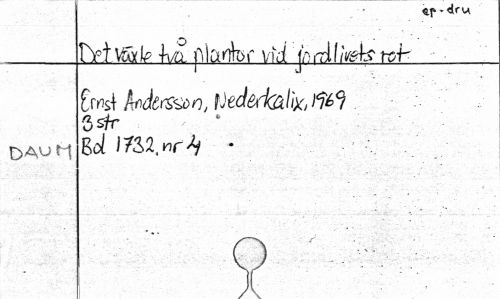 ep-dru
Det växte två plantor vid jordlivets rot
Ernst Andersson, Nederkalix, 1969
3 str
DAUM Bd 1732, nr 4